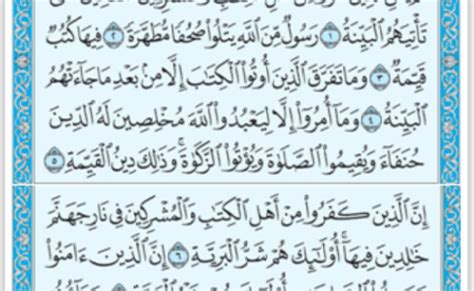 تَأْتِيَهُمُ ٱلْبَيِّنَةُ ١ رَسُولٌ مِّنَ ٱللَّهِ يَتْلُوا۟ صُحُفًا مُّطَهَّرَةً ٢ فِيهَا كُتُبٌ
قَيِّمَةٌ ٣ وَمَا تَفَرَّقَ ٱلَّذِينَ أُوتُوا۟ ٱلْكِتَٰبَ إِلَّا مِنۢ بَعْدِ مَا جَآءَتْهُمُ
ٱلْبَيِّنَةُ ٤ وَمَآ أُمِرُوٓا۟ إِلَّا لِيَعْبُدُوا۟ ٱللَّهَ مُخْلِصِينَ لَهُ ٱلدِّينَ
حُنَفَآءَ وَيُقِيمُوا۟ ٱلصَّلَوٰةَ وَيُؤْتُوا۟ ٱلزَّكَوٰةَ ۚ وَذَٰلِكَ دِينُ ٱلْقَيِّمَةِ ٥
إِنَّ ٱلَّذِينَ كَفَرُوا۟ مِنْ أَهْلِ ٱلْكِتَٰبِ وَٱلْمُشْرِكِينَ فِى نَارِ جَهَنَّمَ
خَٰلِدِينَ فِيهَآ ۚ أُو۟لَٰٓئِكَ هُمْ شَرُّ ٱلْبَرِيَّةِ ٦ إِنَّ ٱلَّذِينَ ءَامَنُوا۟